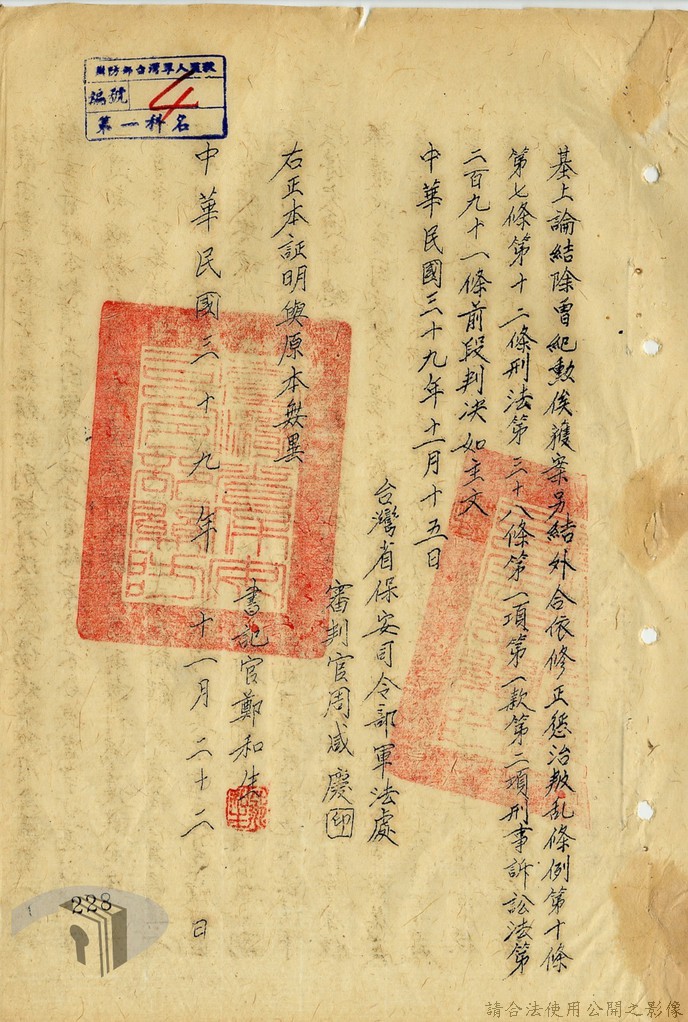 基上論結除曾紀勳俟獲案另結外合依修正懲治叛乱條例第十條
第七條第十二條刑法第三十八條第一項第一款第二項刑事訴訟法第
二百九十一條前段判決如主文
中華民國三十九年十一月十五日
台灣省保安司令部軍法處
審判官周咸慶印
右正本証明與原本無異
書記官鄭和
中華民國三十九年十一月二十二日
國防部台灣軍人監獄
編號 4
第一科名
228
請合法使用公開之影像